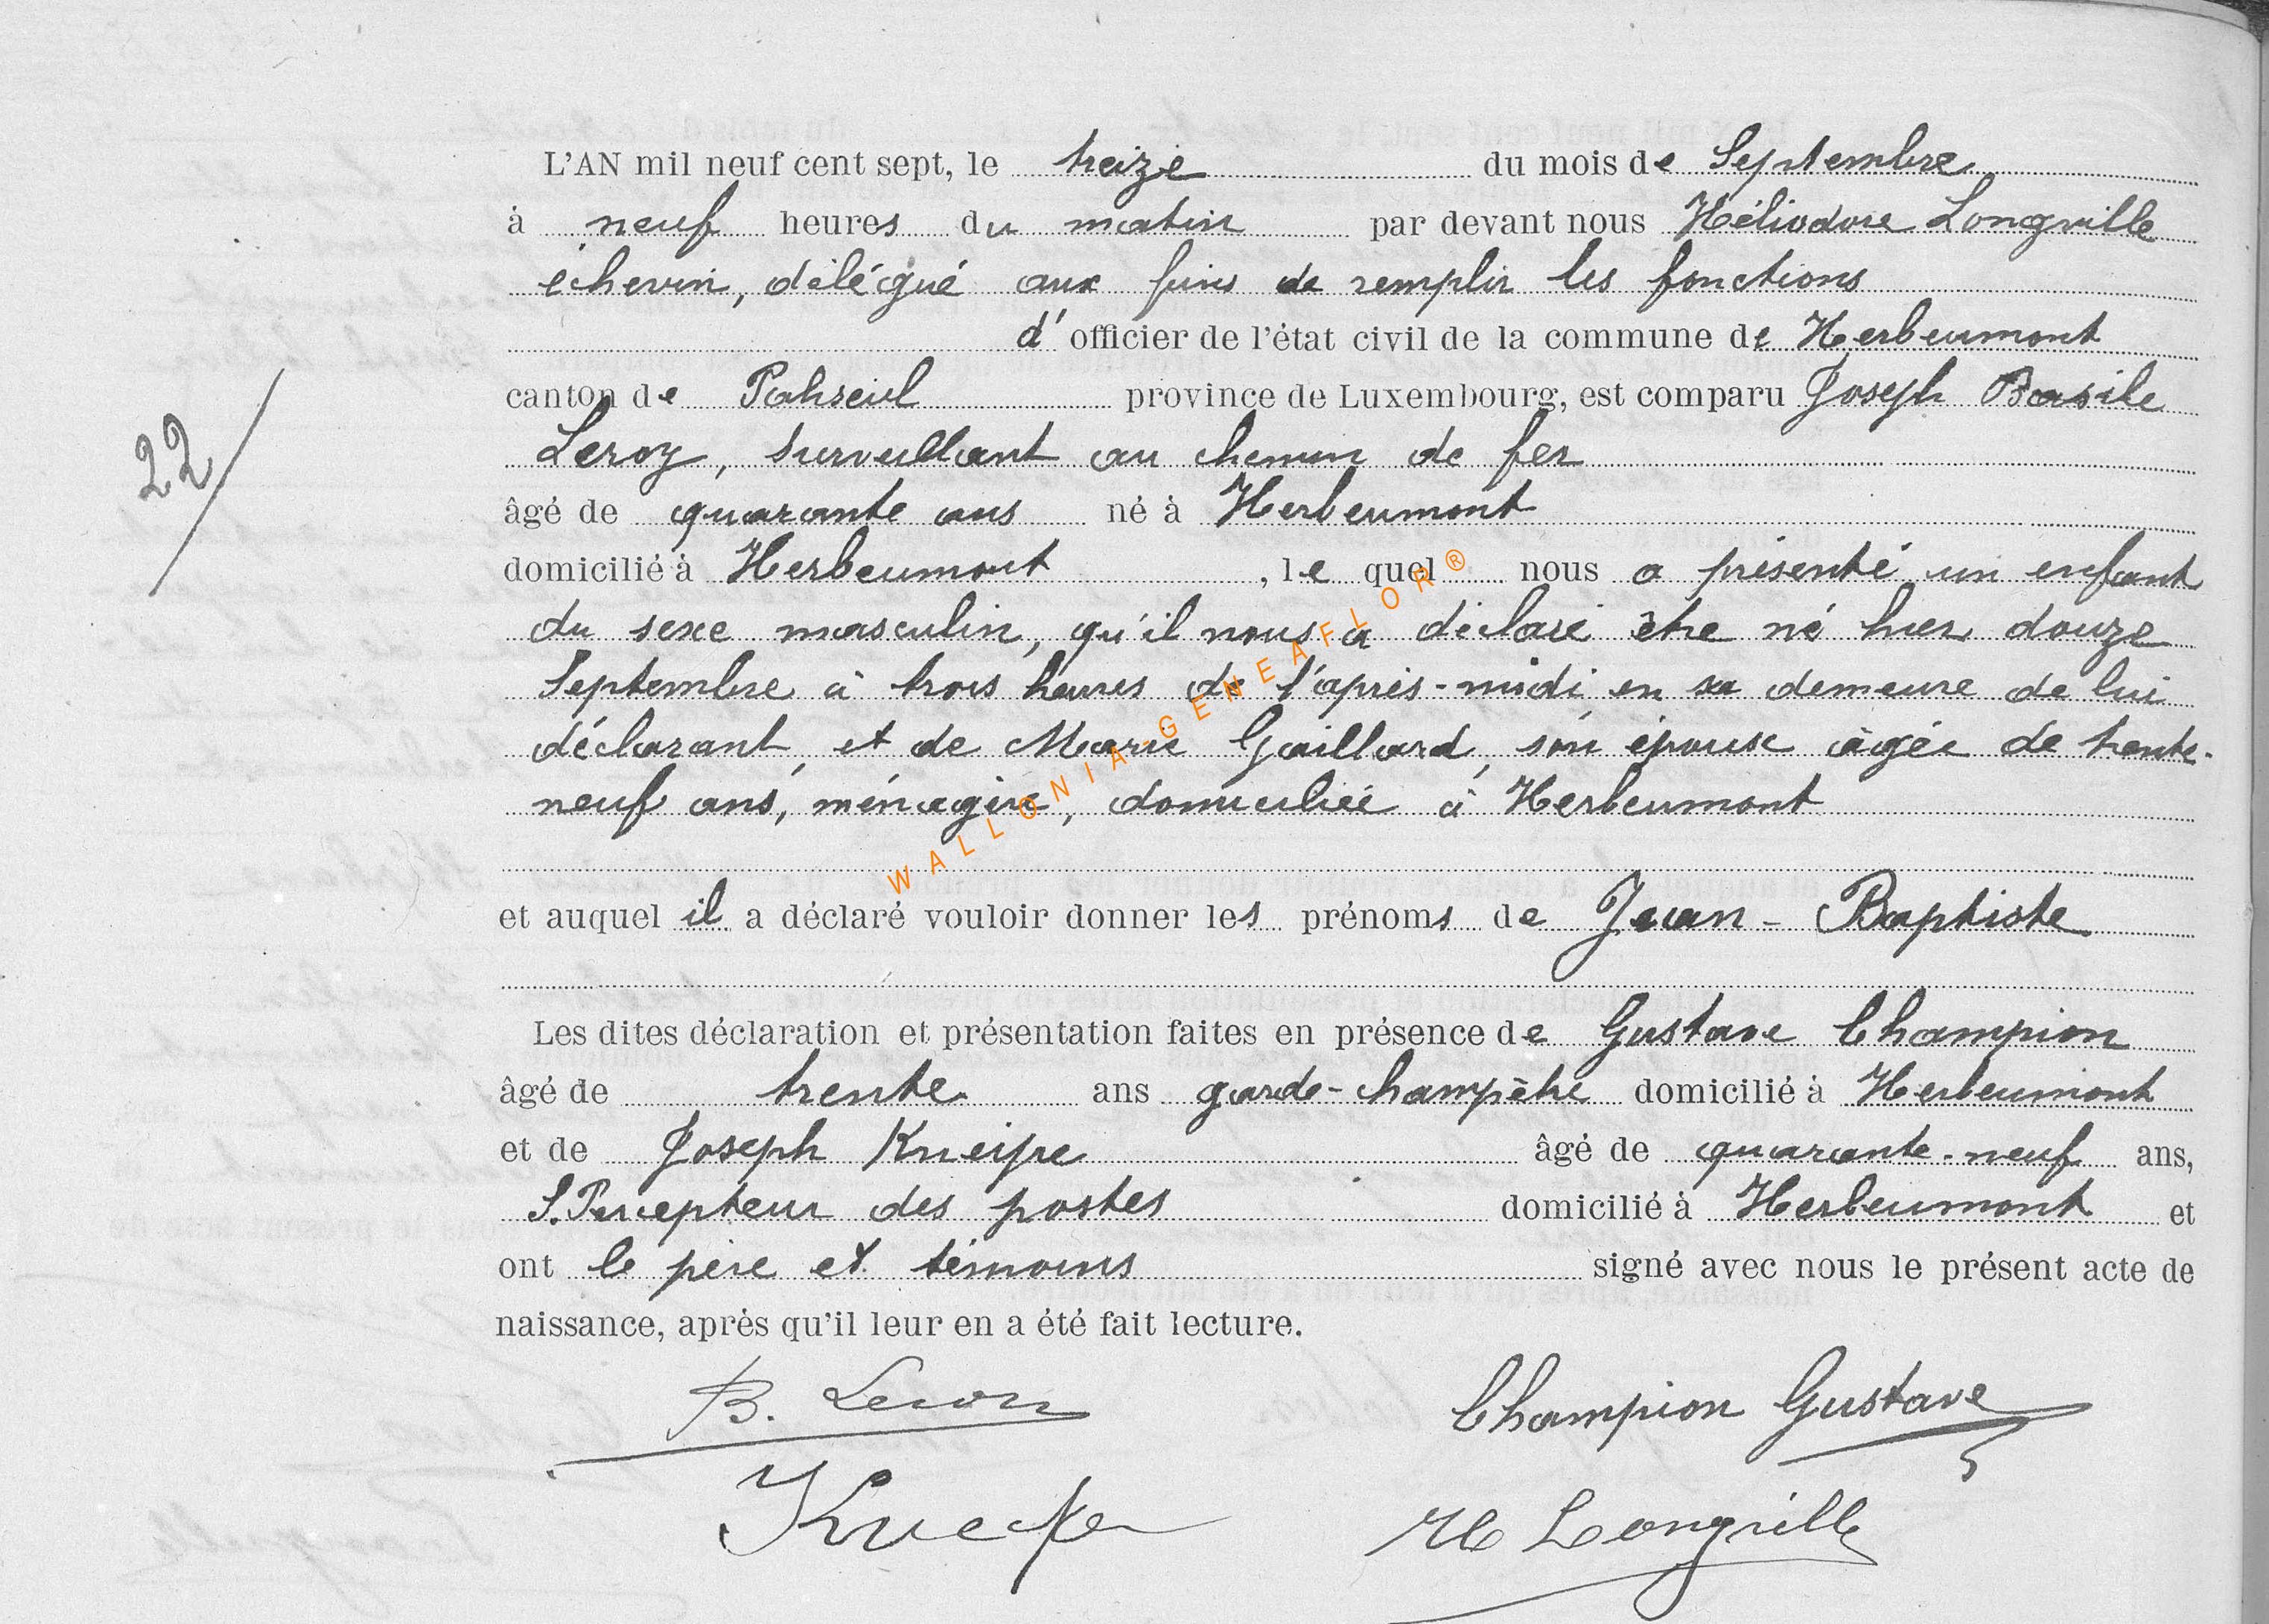 L'AN mil neuf cent sept, le treize du mois de Septembre
à neuf heures du matin par devant nous Héliodore Longville
échevin, délégué aux fins de remplir les fonctions
d'officier de l'état civil de la commune de Herbeumont
canton de Paliseul province de Luxembourg, est comparu Joseph Basile
Leroy, surveillant au chemin de fer
22
âgé de quarante ans né à Herbeumont
domicilié à Herbeumont, le quel nous a présenté un enfant
du sexe masculin, qu'il nous a déclaré être né hier douze
Septembre à trois heures de l'après-midi en sa demeure de lui
déclarant, et de Marie Gaillard, son épouse âgée de trente-
neuf ans, ménagère, domiciliée à Herbeumont
WALLONIA-GENEAFLOR®
et auquel il a déclaré vouloir donner les prénoms de Jean-Baptiste
Les dites déclaration et présentation faites en présence de Gustave Champion
âgé de trente ans garde-champêtre domicilié à Herbeumont
et de Joseph Kneipe âgé de quarante-neuf ans,
S. Percepteur des postes domicilié à Herbeumont et
ont le père et témoins signé avec nous le présent acte de
naissance, après qu'il leur en a été fait lecture.
B. Leroy Champion Gustave
H Longville